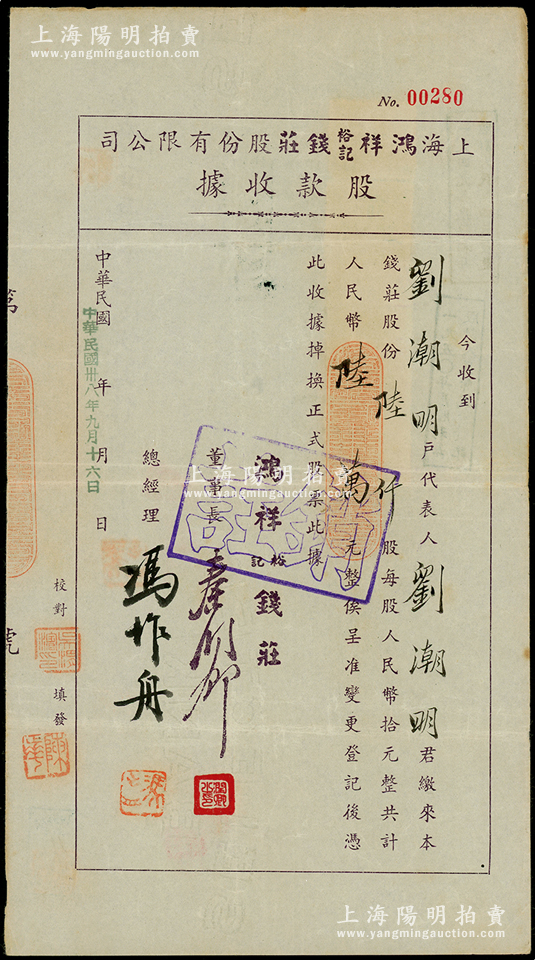 上海陽明拍賣
www.yangmingauction.com
No. 00280
上海鴻祥裕記錢莊股份有限公司
股款收據
今收到
劉潮明戶代表人劉潮明君繳來本
錢莊股份陸仟股每股人民幣拾元整共計
人民幣陸萬元整俟呈准變更登記後憑
此收據掉換正式股票此據
鴻祥裕記錢莊
註銷
董事長
總經理 馮作舟
中華民國 年 月 日
中華民國卅八年九月十六日
校對 填發
第
號
上海陽明拍賣
www.yangmingauction.com
上海陽明拍賣
www.yangmingauction.com